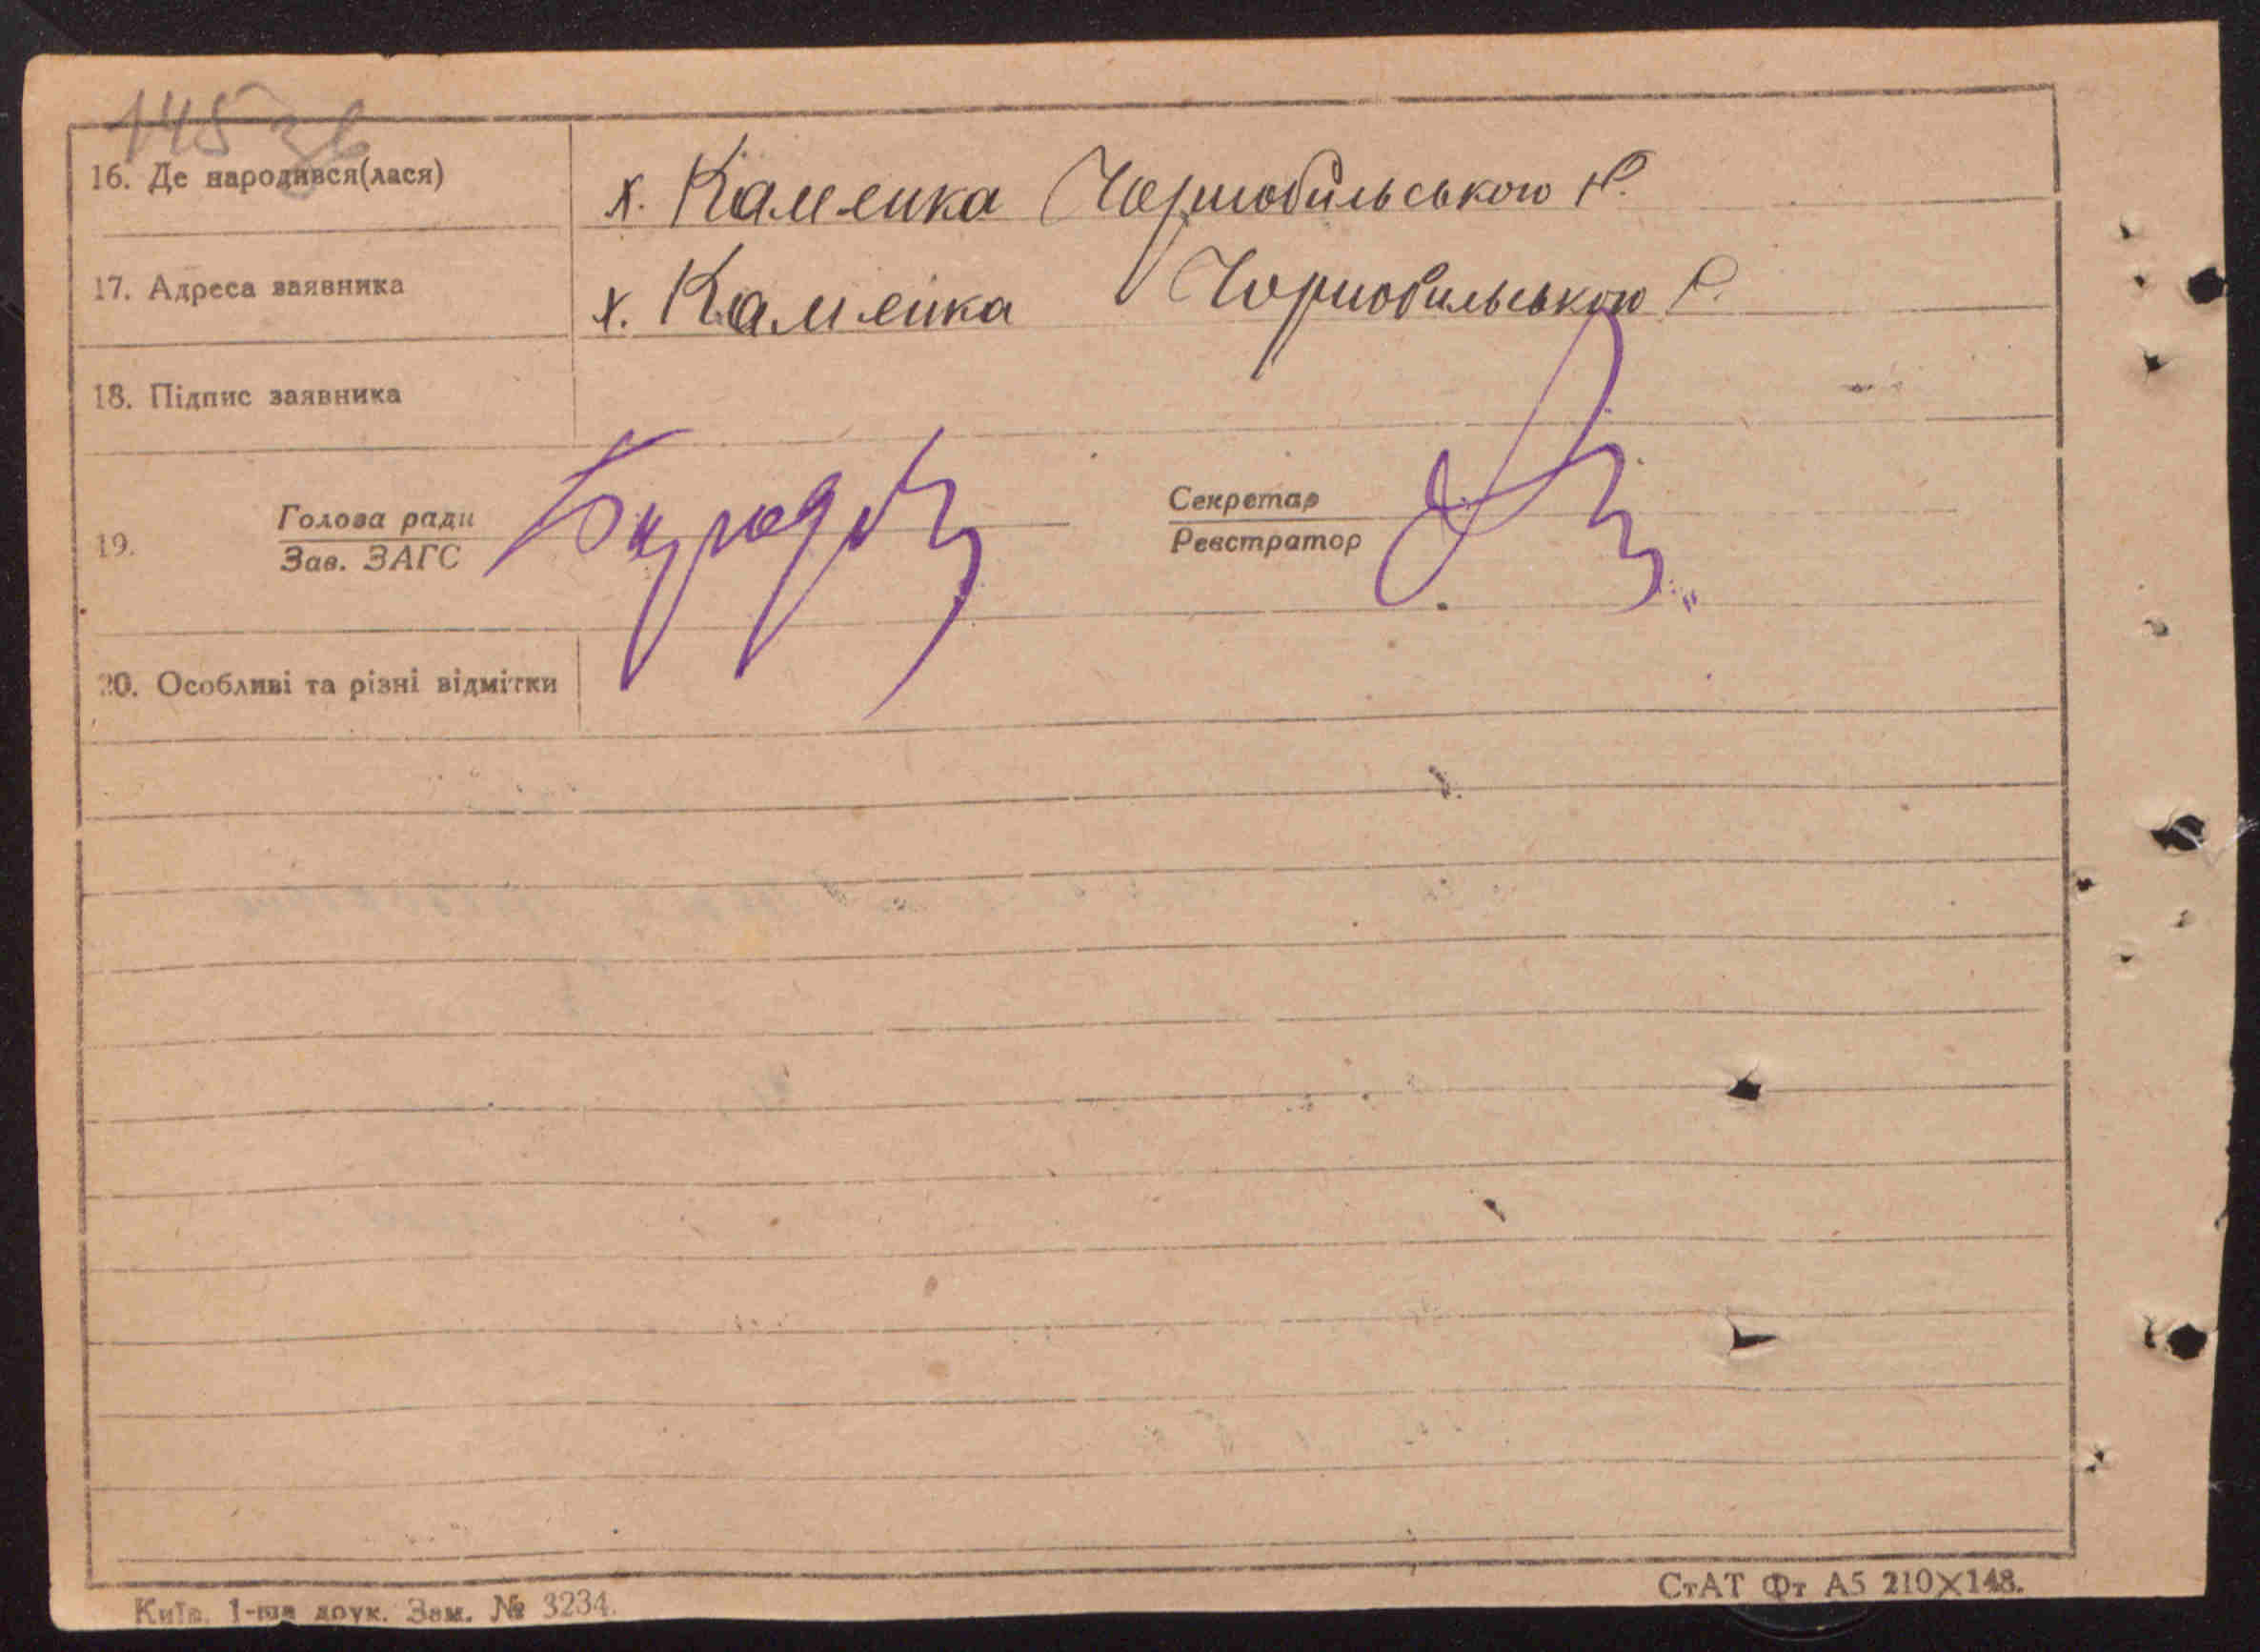 145 зв
16. Де народився(лася) х. Каменка Чорнобильського Р.
17. Адреса заявника х. Каменка Чорнобильського Р.
18. Підпис заявника
19. Голова ради
Зав. ЗАГС
Секретар
Реєстратор
20. Особливі та різні відмітки
Київ. 1-ша друк. Зам. № 3234.
СтАТ Фт А5 210×148.